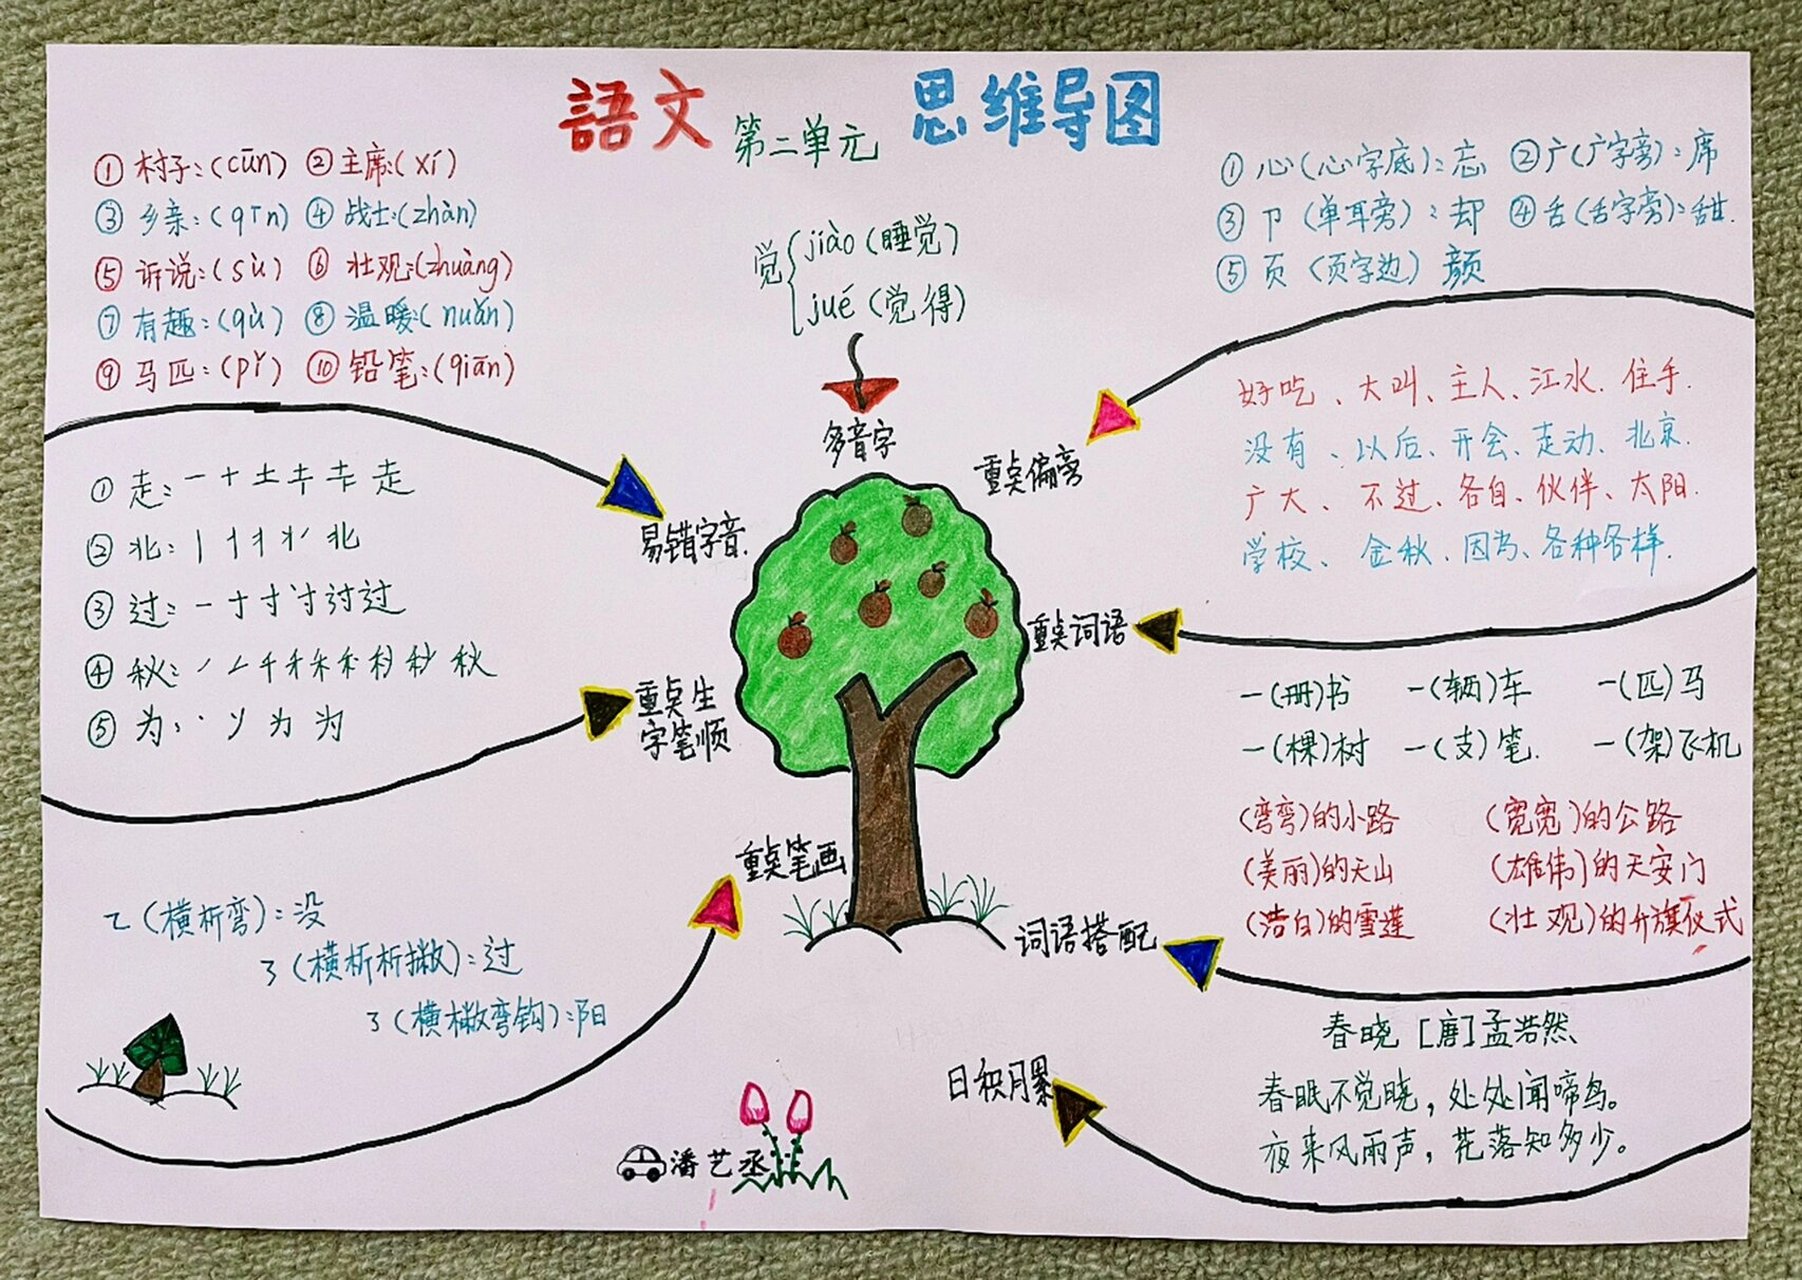 語文 第二单元 思维导图
① 村子:(cūn) ② 主席:(xí)
③ 乡亲:(qīn) ④ 战士:(zhàn)
⑤ 诉说:(sù) ⑥ 壮观:(zhuàng)
⑦ 有趣:(qù) ⑧ 温暖:(nuǎn)
⑨ 马匹:(pǐ) ⑩ 铅笔:(qiān)
易错字音.
觉
jiào (睡觉)
jué (觉得)
多音字
① 心(心字底):忘 ② 广(广字旁):席
③ 卩(单耳旁):却 ④ 舌(舌字旁):甜.
⑤ 页(页字边) 颜
重点偏旁
好吃、大叫、主人、江水.住手.
没有、以后、开会、走动、北京.
广大、不过、各自、伙伴、太阳.
学校、金秋、因为、各种各样.
重点词语
① 走: 一 十 土 走
② 北: 丨 北
③ 过: 一 寸 寸 讨过
④ 秋: 丿 千 禾 秋
⑤ 为: 丶 丷 为 为
重点生
字笔顺
一(册)书 一(辆)车 一(匹)马
一(棵)树 一(支)笔. 一(架)飞机
(弯弯)的小路 (宽宽)的公路
(美丽)的天山 (雄伟)的天安门
(洁白)的雪莲 (壮观)的升旗仪式
词语搭配
重点笔画
乙(横折弯):没
㇋(横折折撇):过
㇌(横撇弯钩):阳
春晓 [唐]孟浩然
春眠不觉晓，处处闻啼鸟。
夜来风雨声，花落知多少。
日积月累
潘艺丞